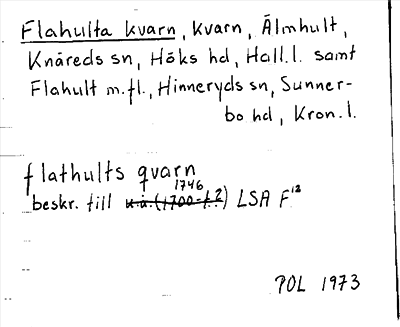 Flahulta kvarn, Kvarn, Älmhult,
Knäreds sn, Höks hd, Hall.l. samt
Flahult m.fl., Hinneryds sn, Sunner-
bo hd, Kron.l.
flathults qvarn
1746
beskr. till u.å. (1700-t.?) LSA F12
POL 1973